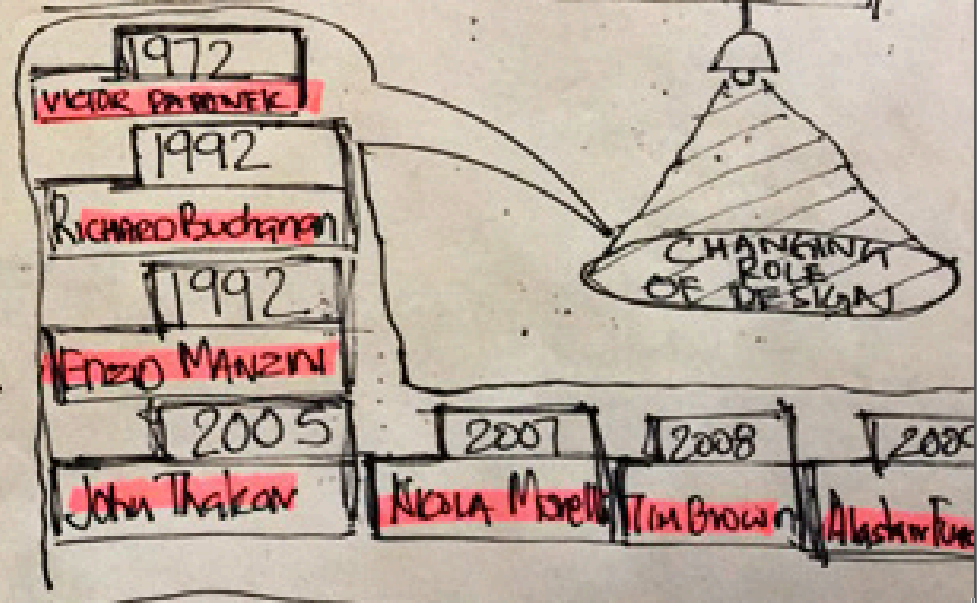 1972
VICTOR PAPANEK
1992
RICHARD Buchanan
1992
Enzio MANZINI
2005
John Thakara
2007
NICOLA Morelli
2008
Tim Brown
Alastair
CHANGING
ROLE
OF DESIGN